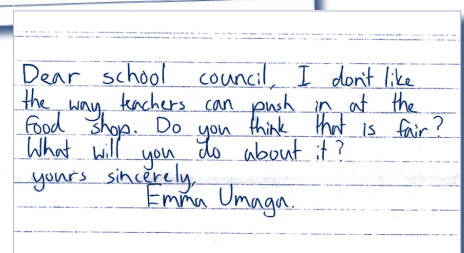 Dear school council, I don't like
the way teachers can push in at the
food shop. Do you think that is fair?
What will you do about it?
yours sincerely,
Emma Umaga.